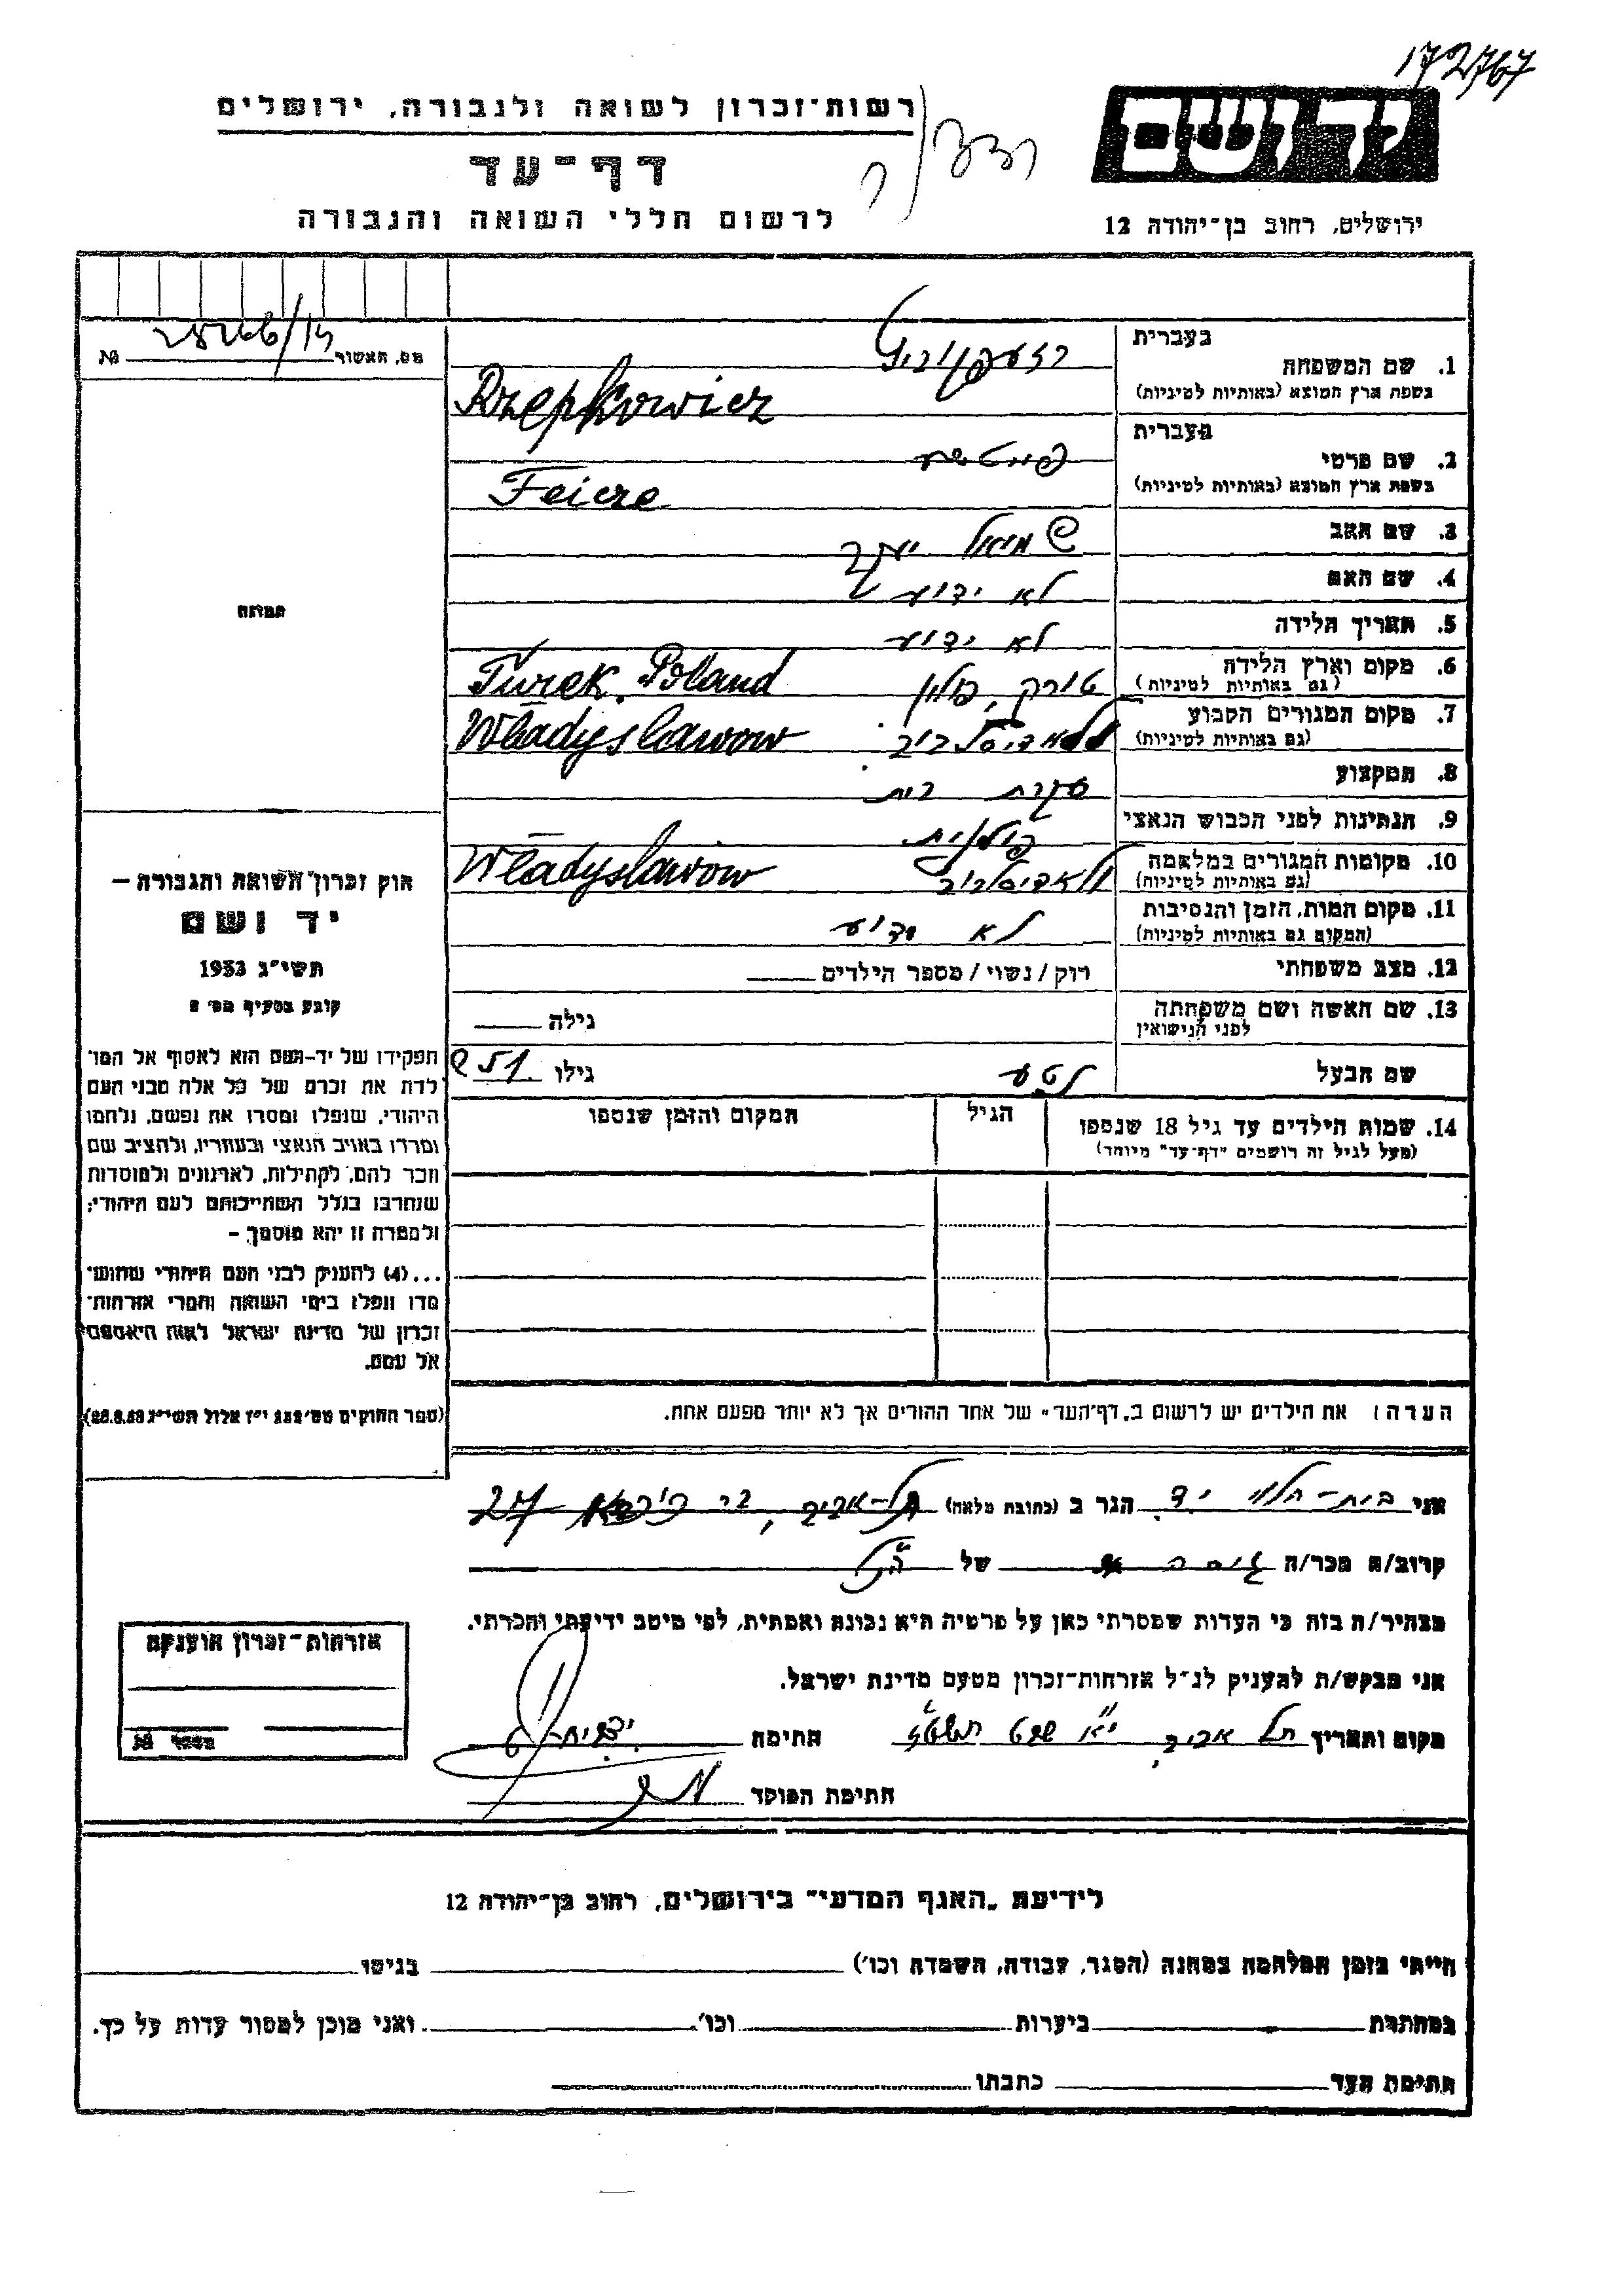 172767
רשות־זכרון לשואה ולגבורה, ירושלים
ידושם
דף־עד
לרשום חללי השואה והגבורה
ירושלים, רחוב בן־יהודה 12
מס. האשור №
בעברית
1. שם המשפחה
בשפת ארץ המוצא (באותיות לטיניות) Rzepkowicz
בעברית
2. שם פרטי
בשפת ארץ המוצא (באותיות לטיניות) Feicze
3. שם האב שמואל יעקב
4. שם האם לא ידוע
5. תאריך הלידה לא ידוע
6. מקום וארץ הלידה טורק, פולין Turek. Poland
(גם באותיות לטיניות)
7. מקום המגורים הקבוע Władysławow
(גם באותיות לטיניות)
8. המקצוע עקרת בית
9. הנתינות לפני הכבוש הנאצי פולנית
10. מקומות המגורים במלחמה Władysławow
(גם באותיות לטיניות)
11. מקום המות, הזמן והנסיבות לא ידוע
(המקום גם באותיות לטיניות)
12. מצב משפחתי רוק / נשוי / מספר הילדים
13. שם האשה ושם משפחתה גילה
לפני הנישואין
שם הבעל גילו 51
14. שמות הילדים עד גיל 18 שנספו הגיל המקום והזמן שנספו
(מעל לגיל זה רושמים "דף־עד" מיוחד)
הערה: את הילדים יש לרשום ב„דף־העד" של אחד ההורים אך לא יותר מפעם אחת.
תמונה
חוק זכרון השואה והגבורה –
יד ושם
תשי"ג 1953
קובע בסעיף מס' 2
תפקידו של יד־ושם הוא לאסוף אל המו־
לדת את זכרם של כל אלה מבני העם
היהודי, שנפלו ומסרו את נפשם, נלחמו
ומרדו באויב הנאצי ובעוזריו, ולהציב שם
וזכר להם, לקהילות, לארגונים ולמוסדות
שנחרבו בגלל השתייכותם לעם היהודי;
ולמטרה זו יהא מוסמך –
...(4) להעניק לבני העם היהודי שהוש־
מדו ונפלו בימי השואה והמרי אזרחות־
זכרון של מדינת ישראל לאות היאספם
אל עמם.
(ספר החוקים מס' 132 י"ז אלול תשי"ג 28.8.53)
אני בית-הלוי י.ד. הגר ב (כתובת מלאה) תל-אביב, 27
קרוב/ה מכר/ה גיסה של הנ"ל
מצהיר/ה בזה כי העדות שמסרתי כאן על פרטיה היא נכונה ואמתית, לפי מיטב ידיעתי והכרתי.
אני מבקש/ת להעניק לנ"ל אזרחות־זכרון מטעם מדינת ישראל.
מקום ותאריך תל אביב, י"א שבט תשט"ז חתימה
חתימת הפוקד
אזרחות־זכרון הוענקה
מספר №
לידיעת „האגף המדעי" בירושלים, רחוב בן־יהודה 12
הייתי בזמן המלחמה במחנה (הסגר, עבודה, השמדה וכו') בגיטו
במחתרת ביערות וכו'. ואני מוכן למסור עדות על כך.
חתימת העד כתבתו